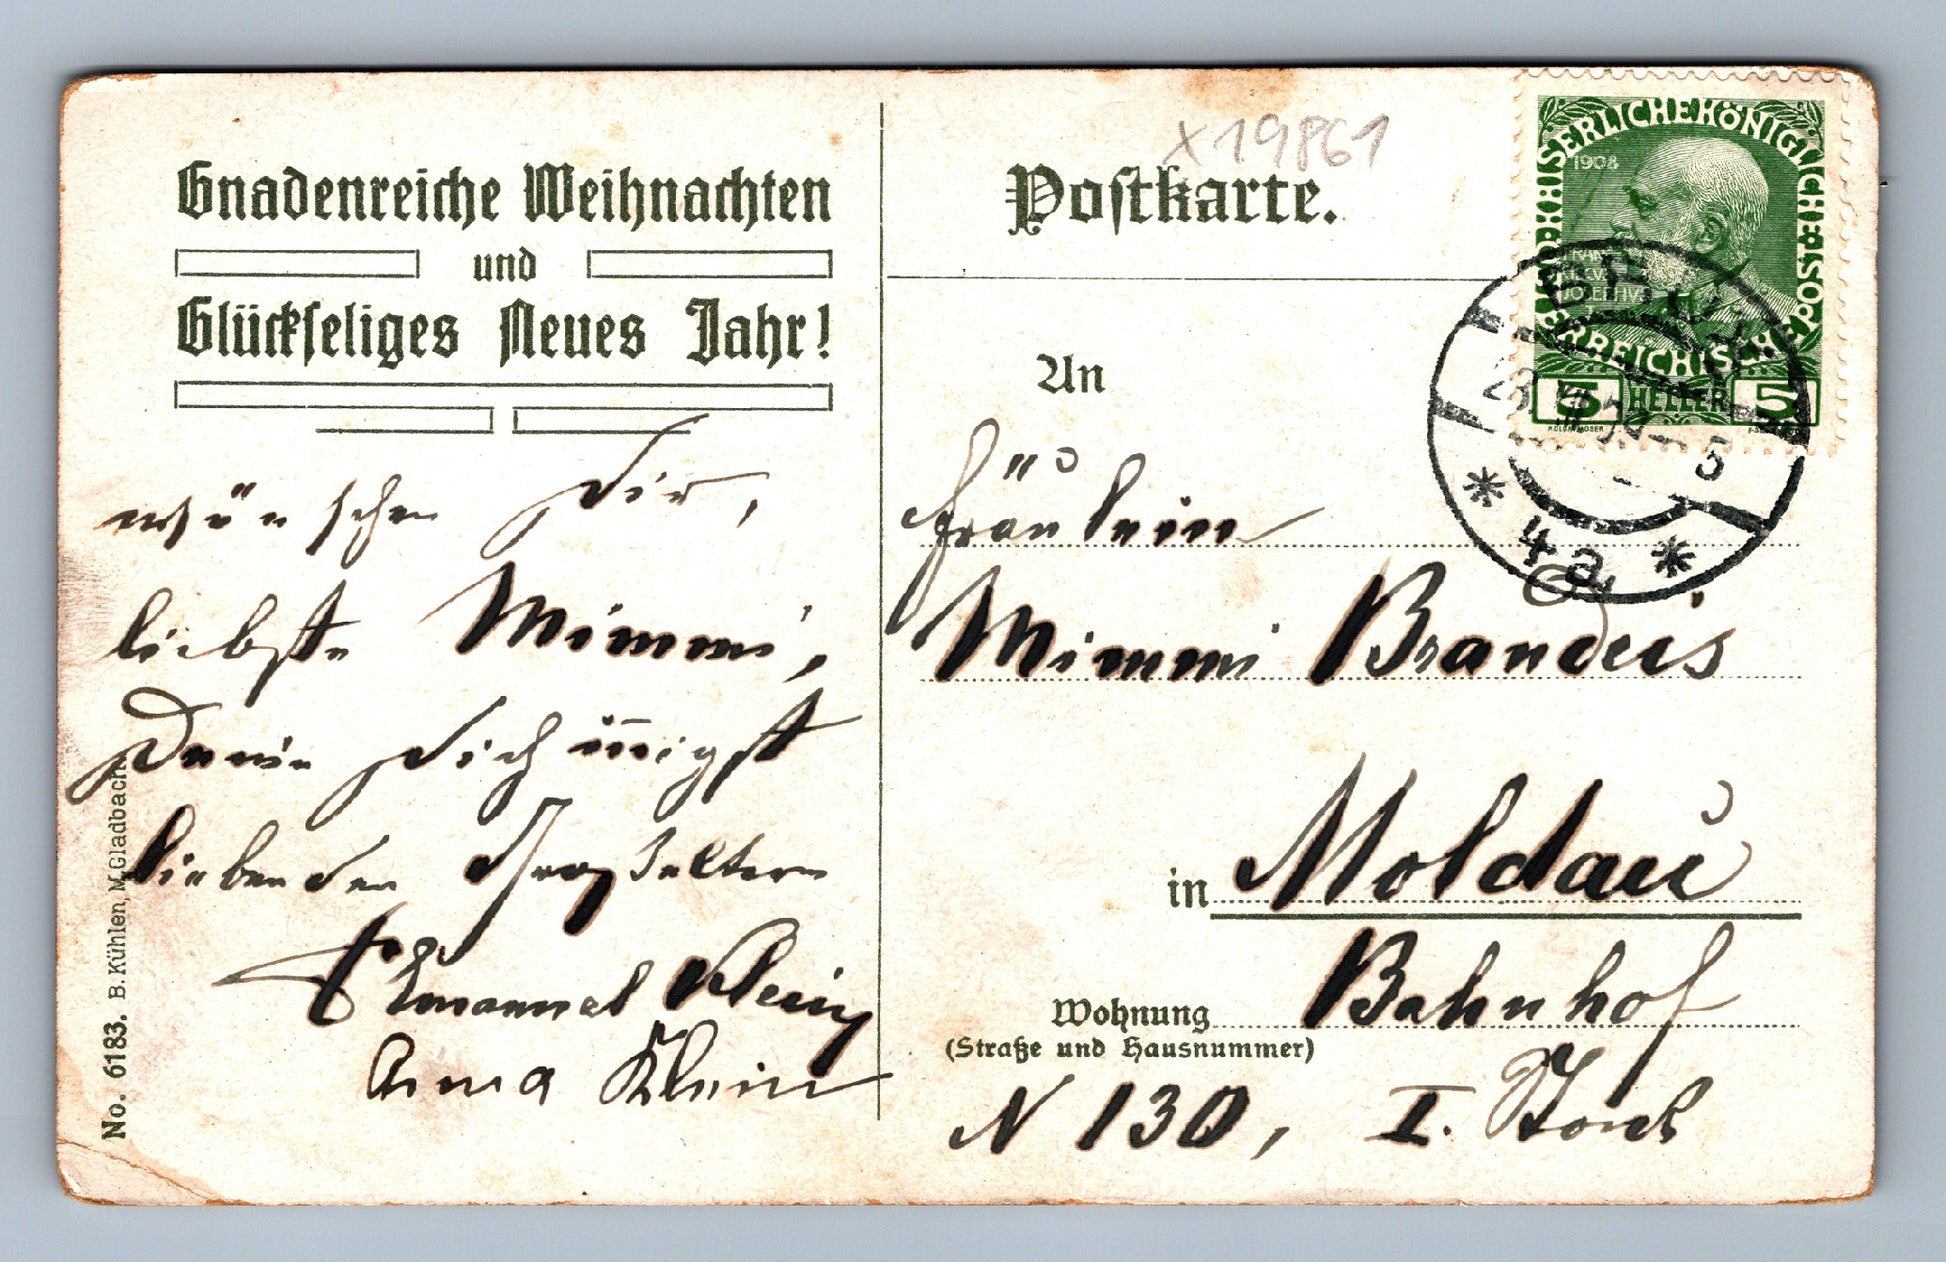 Gnadenreiche Weihnachten
und
Glückseliges Neues Jahr!
wünschen Dir,
liebste Mimmi,
Deine Dich innigst
liebenden Großeltern
Emanuel Klein
Anna Klein
No. 6183. B. Kühlen, M.Gladbach
x19861
Postkarte.
KAISERLICHE KÖNIGLICHE ÖSTERREICHISCHE POST
1908
FRANCISCVS JOSEPHVS I
5 HELLER 5
BRÜX
23. XII 09 - 5
* 4a *
An
Fräulein
Mimmi Brandeis
in Moldau
Wohnung Bahnhof
(Straße und Hausnummer)
N 130, I. Stock